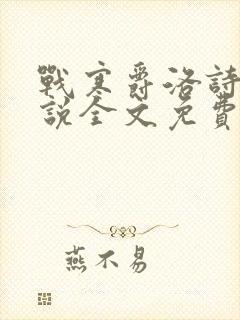 戰寒爵洛詩
說全文免費
燕不易